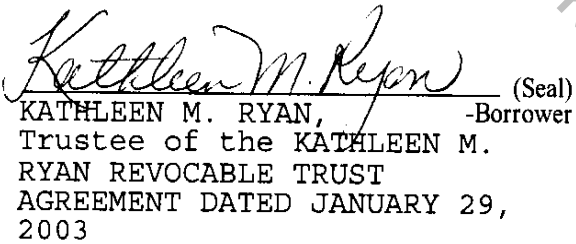 Kathleen M. Ryan
(Seal)
KATHLEEN M. RYAN, -Borrower
Trustee of the KATHLEEN M.
RYAN REVOCABLE TRUST
AGREEMENT DATED JANUARY 29,
2003